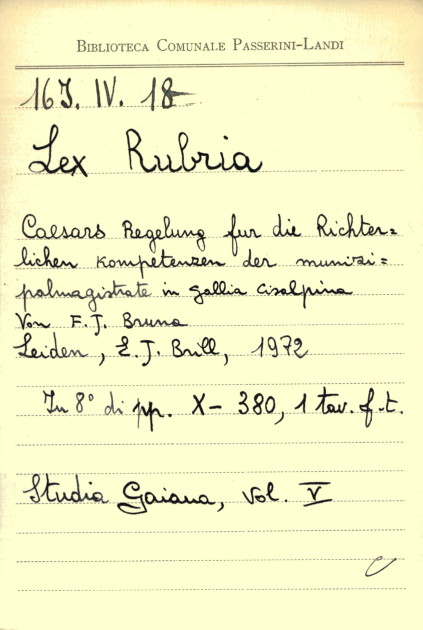 BIBLIOTECA COMUNALE PASSERINI-LANDI
16J. IV. 18
Lex Rubria
Caesars Regelung fur die Richter=
lichen Kompetenzen der munizi=
palmagistrate in gallia cisalpina
Von F.J. Bruna
Leiden, E.J. Brill, 1972
In 8° di pp. X- 380, 1 tav. f.t.
Studia Gaiana, vol. V